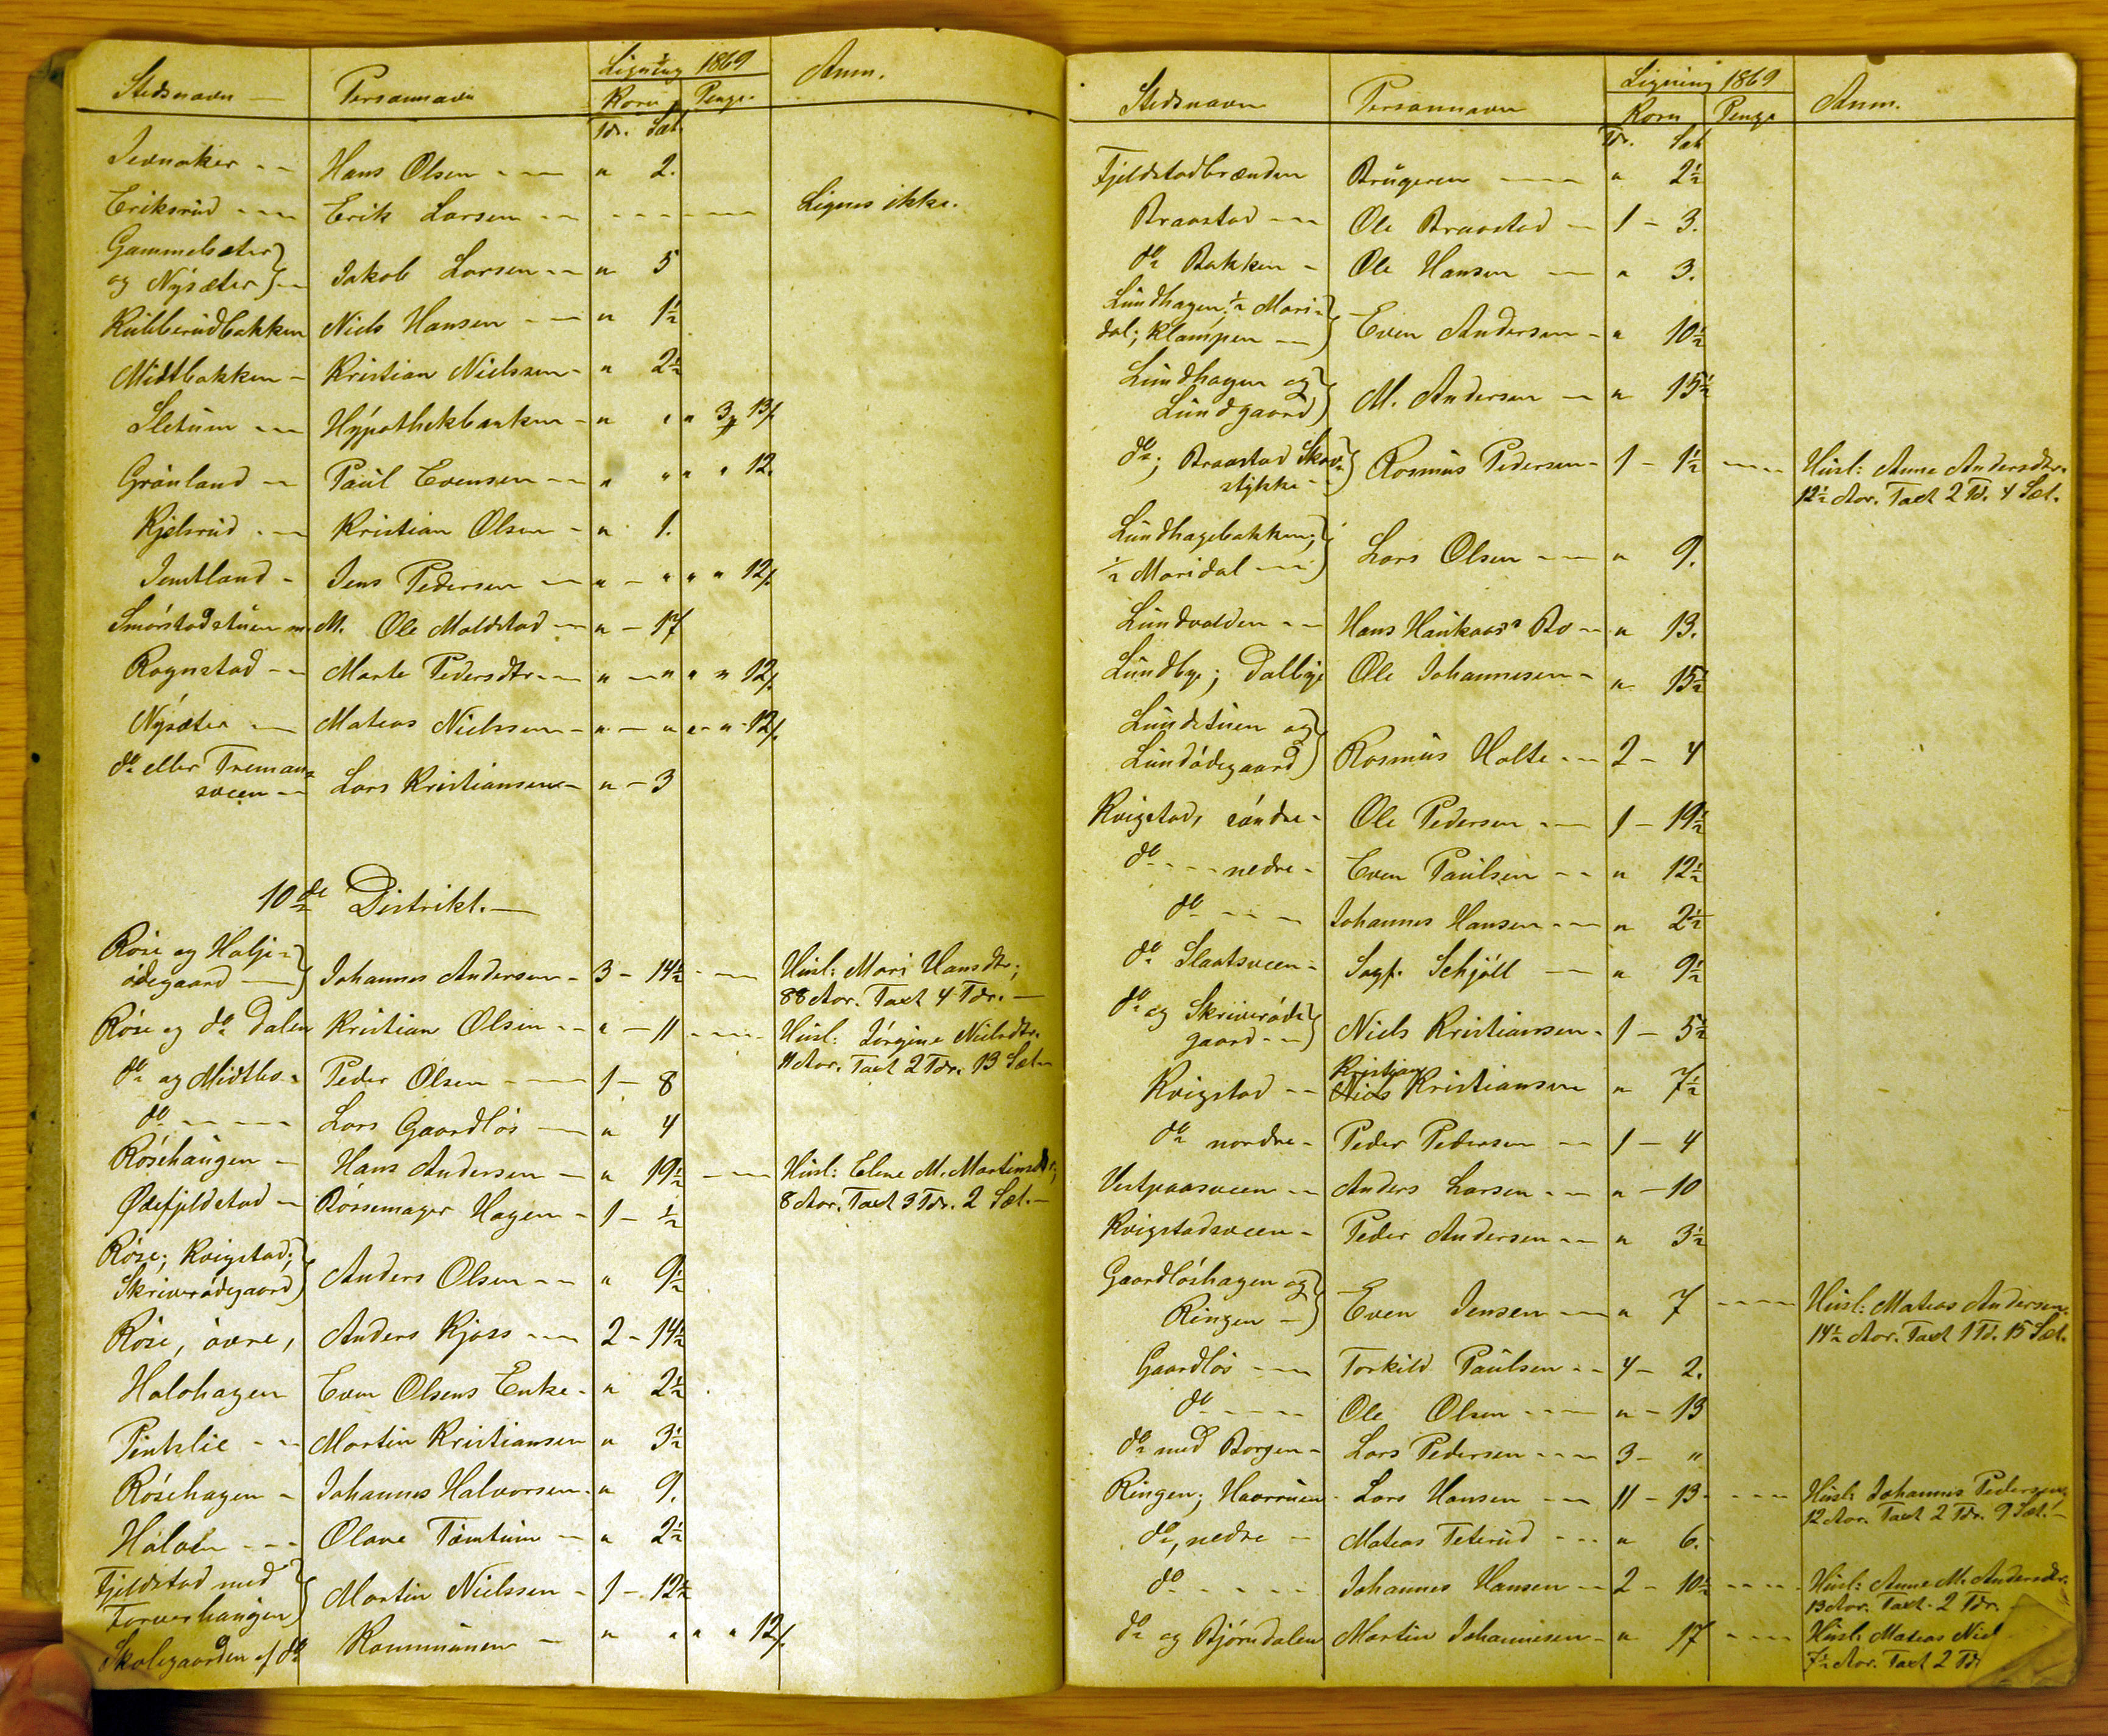 Stedsnavn — Personnavn Ligning 1869 Anm.
Korn Penge.
Tdr. Sæt.
Jevnaker -- Hans Olsen --- " 2.
Eriksrud --- Erik Larsen -- ------ Lignes ikke.
Gammelsæter
og Nysæter -- Jakob Larsen -- " 5
Kubberudbakken Niels Hansen -- " 1½
Midtbakken - Kristian Nielssen - " 2½
Sletum -- Hypothekbanken - " " " 3 13/.
Grönland -- Paul Evensen -- " " " " 12.
Kjelsrud -- Kristian Olsen - " 1.
Jemtland - Jens Pedersen -- " - " " " 12/.
Smörstadstuen m. M. Ole Moldstad -- " - 17
Rognstad -- Marte Pedersdtr. -- " - " " " 12/.
Nysæter — Mateas Nielssen - " - " " - " - 12/.
do eller Tremans-
sveen -- Lars Kristiansen - " - 3
10de Distrikt. —
Röise og Halje-
ödegaard — Johannes Andersen - 3 - 14½ --- Husl: Mari Hansdtr;
88 Aar. Taxt 4 Tdr. —
Röse og do Dalen Kristian Olsen -- " - 11 ---- Husl: Jörgine Nielsdtr.
11 Aar. Taxt 2 Tdr. 13 Sæt. -
do og Midtbo - Peder Olsen --- 1 - 8
do ---- Lars Gaardlös — " 4
Rösehaugen — Hans Andersen — " 19½ --- Husl: Elene M. Martinsdtr;
8 Aar. Taxt 3 Tdr. 2 Sæt. -
Ödefjeldstad — Börsemager Hagen - 1 - ½
Röse; Kvigstad;
Skriverödegaard Anders Olsen -- " 9½
Röse, övre, Anders Kjoss --- 2 - 14½
Holohagen Even Olsens Enke - " 2½
Pintslie -- Martin Kristiansen " 3½
Rösehagen - Johannes Halvorsen - " 9.
Halven --- Olave Tömtum — " 2½
Fjeldstad med
Torverhaugen Martin Nielssen - 1 - 12½
Skolegaarden af do Kommunen — " " " " 12/.
Stedsnavn Personnavn Ligning 1869 Anm.
Korn Penge
Tdr. Sæt
Fjeldstadbrænden Brugeren --- " 2½
Braastad --- Ole Braastad — 1 - 3.
do Bakken - Ole Hansen — " 3.
Lundhagen; ½ Mari-
dal; Klampen — Even Andersen - " 10½
Lundhagen og
Lundgaard M. Andersen — " 15½
do; Braastad Skov-
stykke -- Rasmus Pedersen - 1 - 1½ ---- Husl: Anne Andersdtr.
12½ Aar. Taxt 2 Td. 4 Sæt.
Lundhagebakken;
½ Maridal --- Lars Olsen --- " 9.
Lundvolden -- Hans Haukaas's Bo -- " 13.
Lundby; Dalbye Ole Johannesen - " 15½
Lundstuen og
Lundödegaard Rasmus Holte --- 2 - 4
Kvigstad, söndre - Ole Pedersen -- 1 - 19½
do --- nedre - Even Paulsen -- " 12½
do --- Johannes Hansen --- " 2½
do Slaatsveen - Sagf. Schjöll — " 9½
do og Skriveröde
gaard -- Niels Kristiansen - 1 - 5½
Kristian
Kvigstad -- Niels Kristiansen " 7½
do nordre - Peder Pedersen -- 1 - 4
Vestpaasveen -- Anders Larsen -- " - 10
Kvigstadsveen - Peder Andersen -- " 3½
Gaardlöshagen og
Ringen — Even Jensen --- " 7 ---- Husl: Mateas Andersen.
14½ Aar. Taxt 1 Td. 15 Sæt.
Gaardlös --- Torkild Paulsen -- 4 - 2.
do ---- Ole Olsen --- " - 13
do med Borgen - Lars Pedersen --- 3 - "
Ringen; Haarruen - Lars Hansen --- 11 - 13 ---- Husl: Johannes Pedersen
12 Aar. Taxt 2 Tdr. 9 Sæt. -
do, nedre - Mateas Teterud --- " 6.
do ----- Johannes Hansen -- 2 - 10½ ---- Husl: Anne M. Andersdtr.
13 Aar. Taxt. 2 Tdr. -
do og Björndalen Martin Johannesen - " 17 ---- Husl: Mateas Niel
7½ Aar. Taxt 2 Td